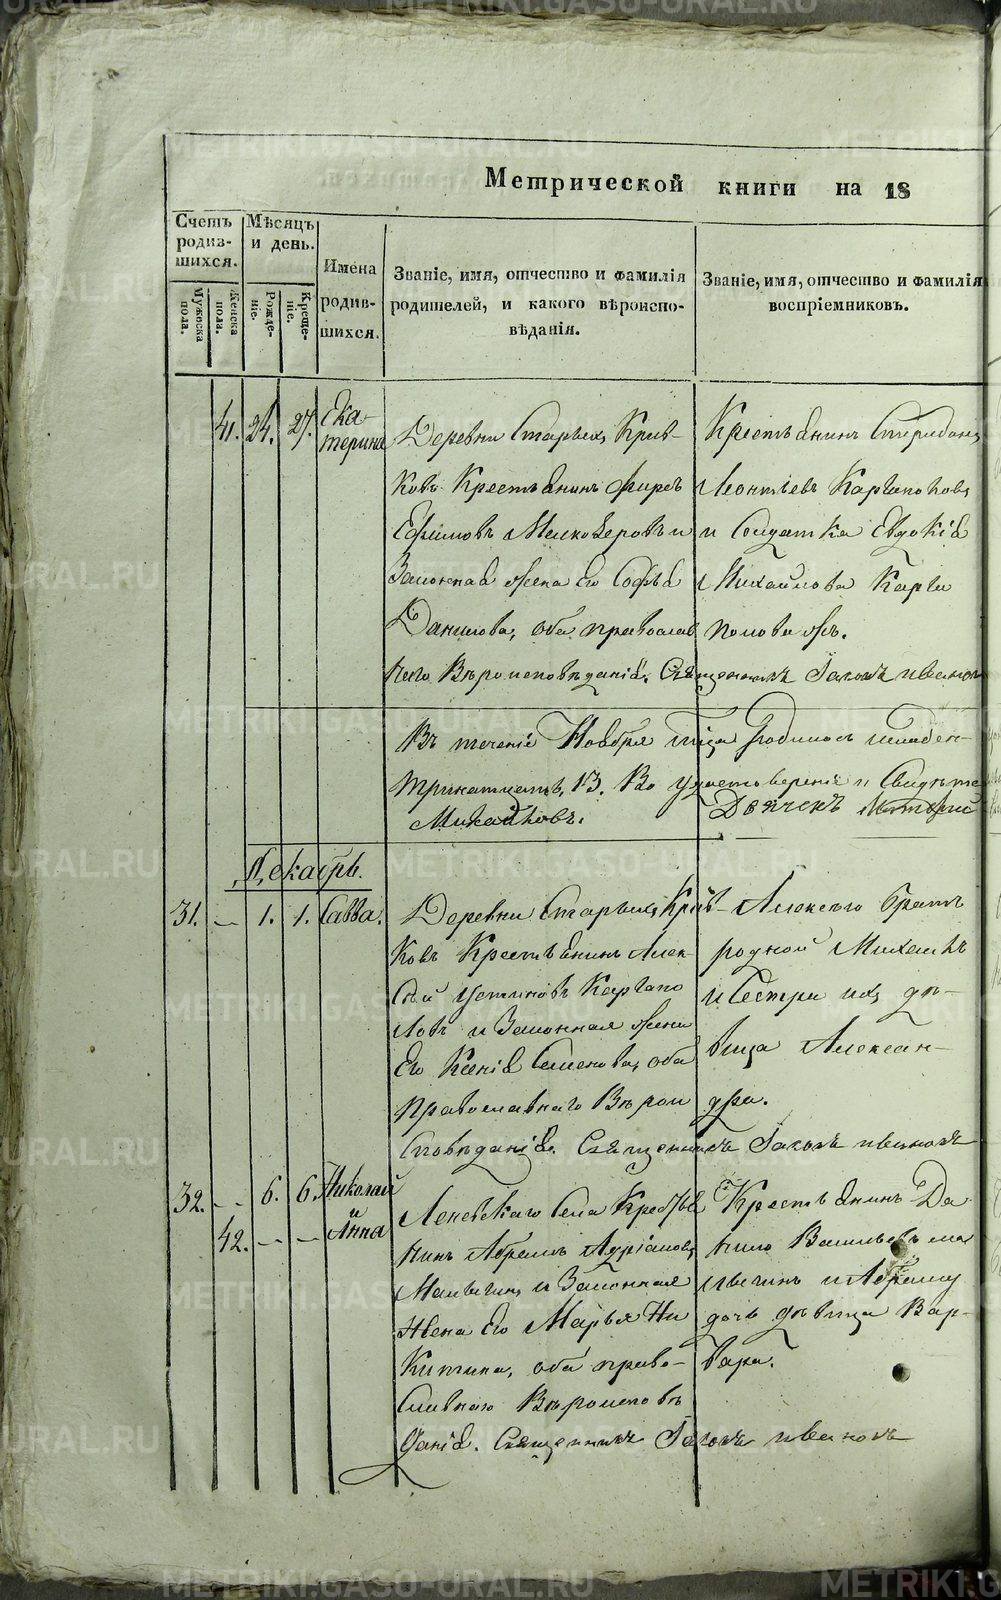 Метрической книги на 18
Счетъ родив-шихся.
Мужеска пола.
Женска пола.
Мѣсяцъ и день.
Рожде-ніе.
Креще-ніе.
Имена родив-шихся.
Званіе, имя, отчество и фамилія
родителей, и какого вѣроиспо-
вѣданія.
Званіе, имя, отчество и фамилія
воспріемниковъ.
41. 24. 27. Ека-
терина
Деревни Старыхъ Крив-
ковъ Крестьянинъ Фирсъ
Ефимовъ и
Законная жена его Софья
Данилова, оба православ
наго Вѣроисповѣданія. Священникъ Іаковъ Ивановъ
Крестьянинъ Спиридонъ
Леонтьевъ Каргаполовъ
и Солдатка Евдокія
Михайлова Карга
полова жъ.
Въ теченіе Ноября м-ца Родилось младен-
тринатцать, 13. Во удостовереніе и Свидѣте
Дьячекъ
Декабрь.
31. — 1. 1. Савва.
Деревни Старыхъ Крив-
ковъ Крестьянинъ Алек-
сѣй Устиновъ Каргапо
ловъ и Законная жена
Его Ксенія Семенова, оба
Православнаго Вѣрои
сповѣданія. Священникъ Іаковъ Ивановъ
Алексѣя братъ
родной Михаилъ
и Сестра ихъ дѣ-
вица Алексан-
дра.
32. -- 6. 6 Николай
и
42. -- -- Анна
Леневскаго Села Крестья
нинъ Абрамъ Адріановъ
Малыгинъ и Законная
Жена Его Марья Ни
китина, оба право-
славнаго Вѣроисповѣ
данія. Священникъ Іаковъ Ивановъ
Крестьянинъ Да
нило Васильевъ Ма
лыгинъ и Абраму
дочь дѣвица Вар-
вара.
METRIKI.GASO-URAL.RU